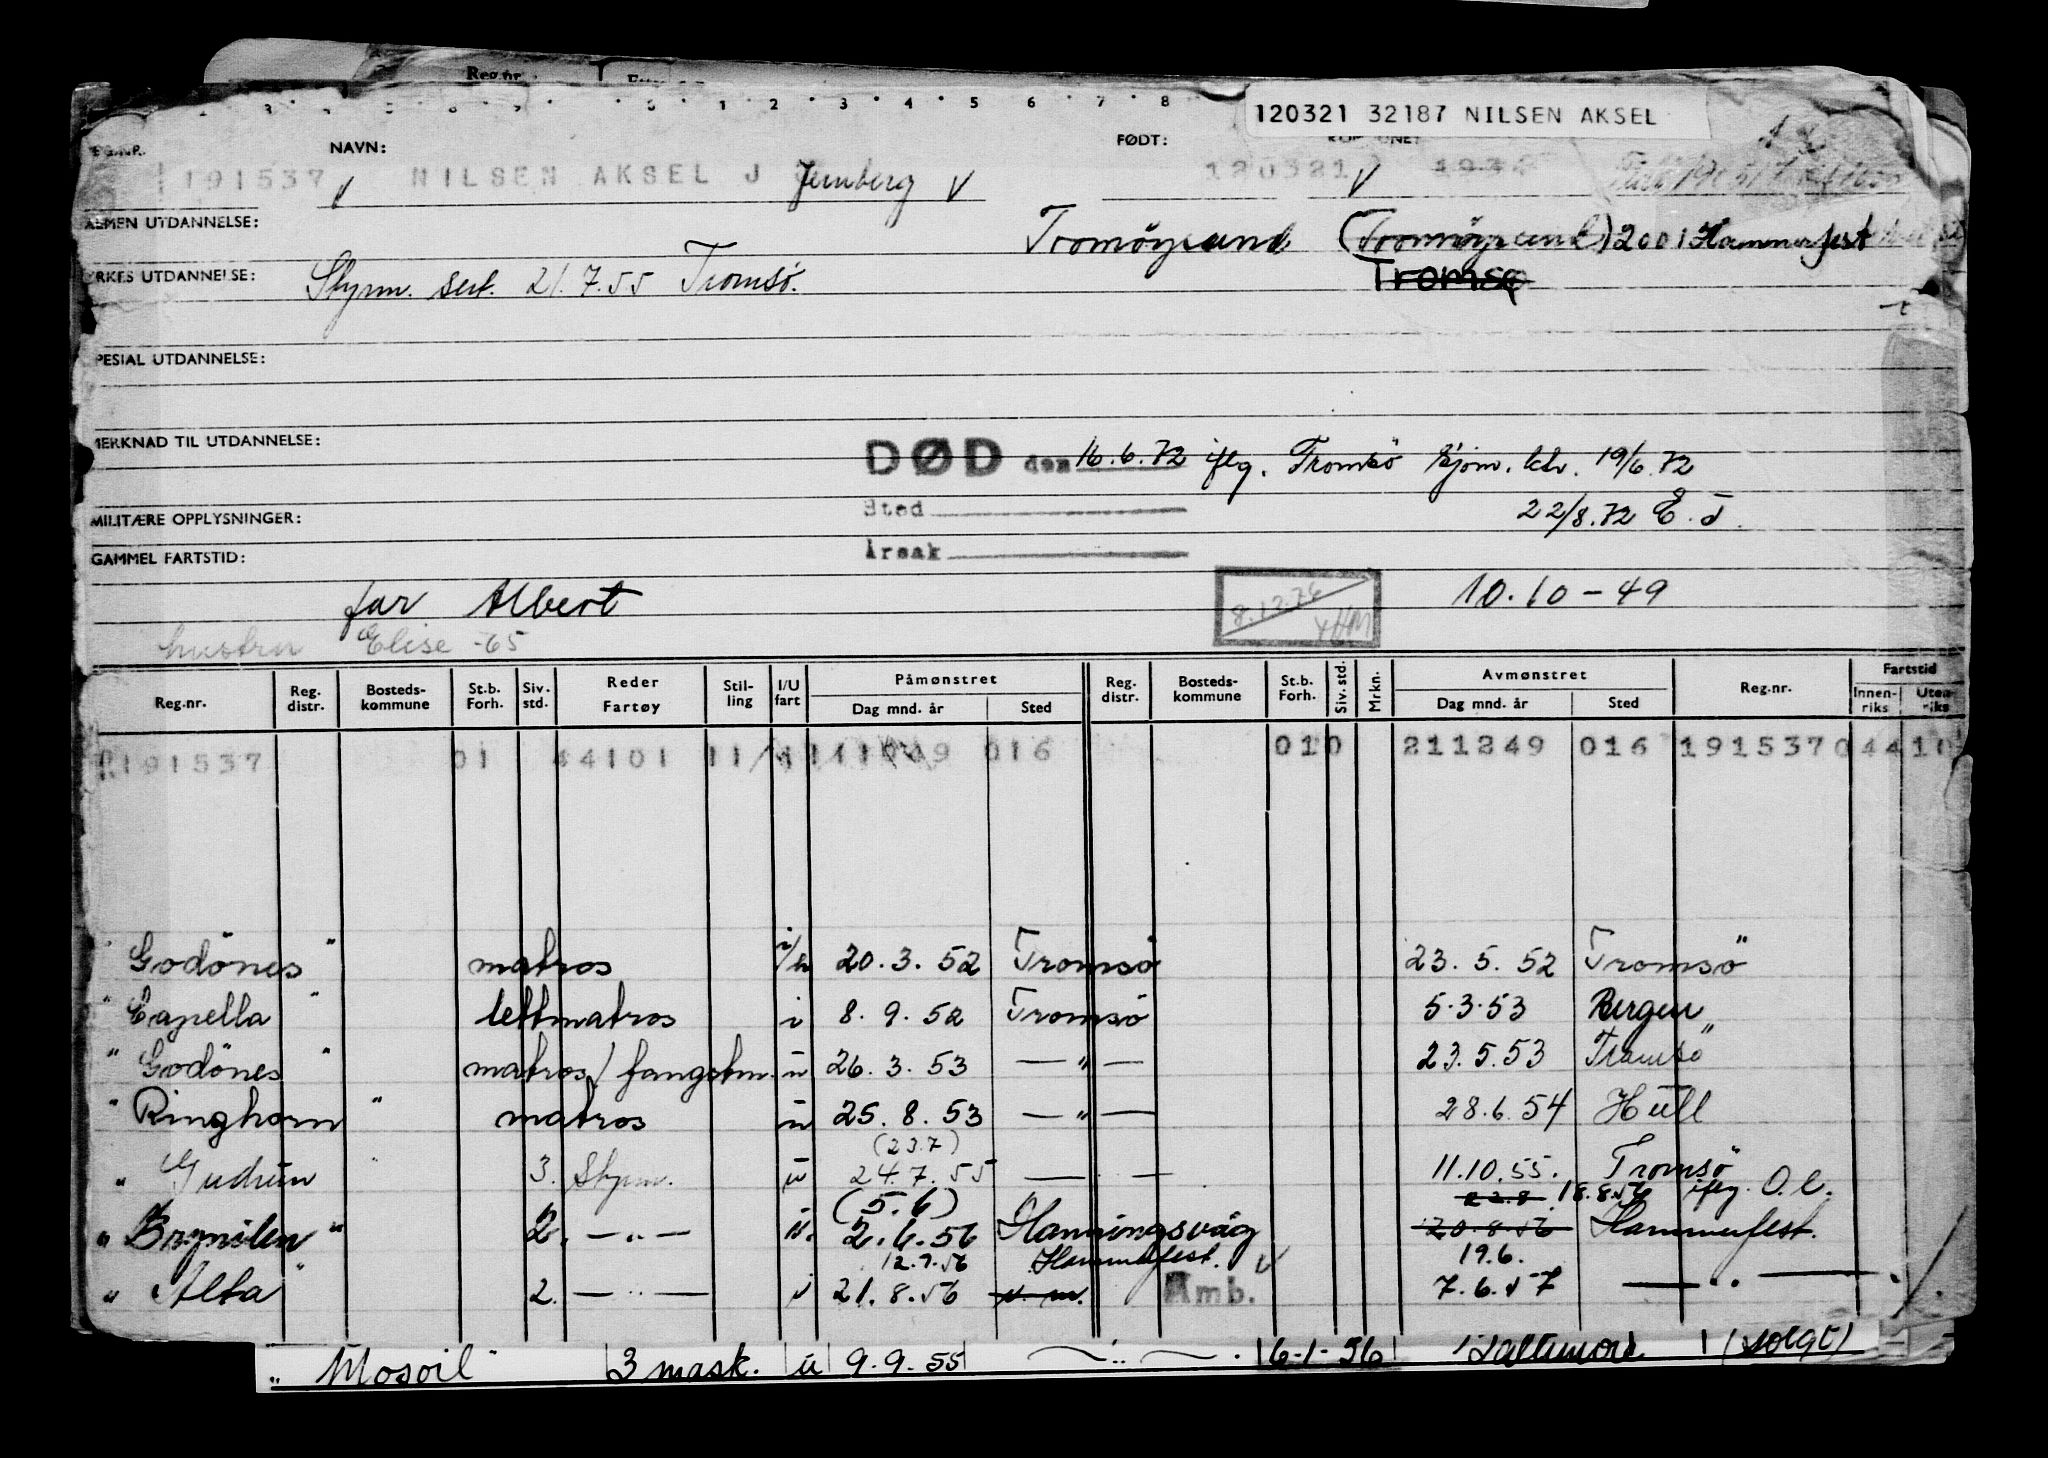 Reg.nr.
3 · 4 · 5 · 6 · 7 · 8
120321 32187 NILSEN AKSEL
NAVN: FØDT:
191537 NILSEN AKSEL J Jernberg V 120321 V
ALMEN UTDANNELSE: Tromöysund (Tromöysund) 2001 Hammerfest
YRKES UTDANNELSE: Styrm. sert. 21.7.55 Tromsö. Tromsø
SPESIAL UTDANNELSE:
MERKNAD TIL UTDANNELSE:
DØD den 16.6.72 iflg. Tromsö sjöm. ktr. 19/6.72
MILITÆRE OPPLYSNINGER: Sted 22/8.72
GAMMEL FARTSTID: Årsak
far Albert 8.12.76 10.10-49
hustru Elise -65
Reg.nr. Reg. distr. Bosteds-kommune St.b. Forh. Siv. std. Reder Fartøy Stil-ling I/U fart Påmønstret Dag mnd. år Sted Reg. distr. Bosteds-kommune St.b. Forh. Siv. std. Mrkn. Avmønstret Dag mnd. år Sted Reg.nr. Fartstid Innen-riks Uten-riks
191537 01 44101 11 016 010 211249 016 1915370 44 10
" Godönes " matros i/u 20.3.52 Tromsö 23.5.52 Tromsö
" Capella " lettmatros i 8.9.52 Tromsö 5.3.53 Bergen
" Godönes " matros/fangstm. u 26.3.53 — " — 23.5.53 Tromsö
" Ringhorn " matros u 25.8.53 — " — 28.6.54 Hull
(23.7)
" Gudrun 3. Styrm. u 24.7.55 — " — 11.10.55. Tromsö
(5.6) 22.8 18.8.56 iflg. O.l.
" Brynilen " 2. — " — u. 2.6.56 Honningsvåg 20.8.56 Hammerfest.
12.7.56 Hammerfest. V 19.6.
" Alta " 2. — " — i 21.8.56 Amb. 7.6.57 — " —
" Mosoil " 3 mask. u 9.9.55 — " — 6-1-56 Baltimore (solgt)